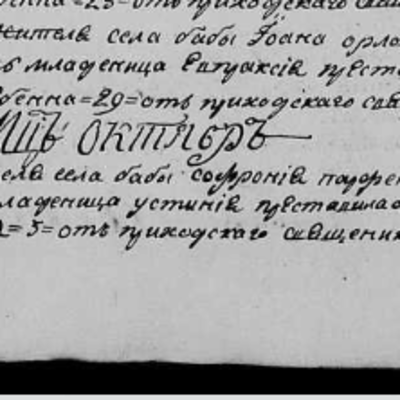 бенна = 23 = отъ приходскаго свящ
жителя села бабы Іоана орло
ъ младеница Евпраксія преста
бенна = 29 = отъ приходскаго свя
мцъ октябръ
еля села бабы софронія парфен
ладеница устинія преставилас
а = 5 = отъ приходскаго священик